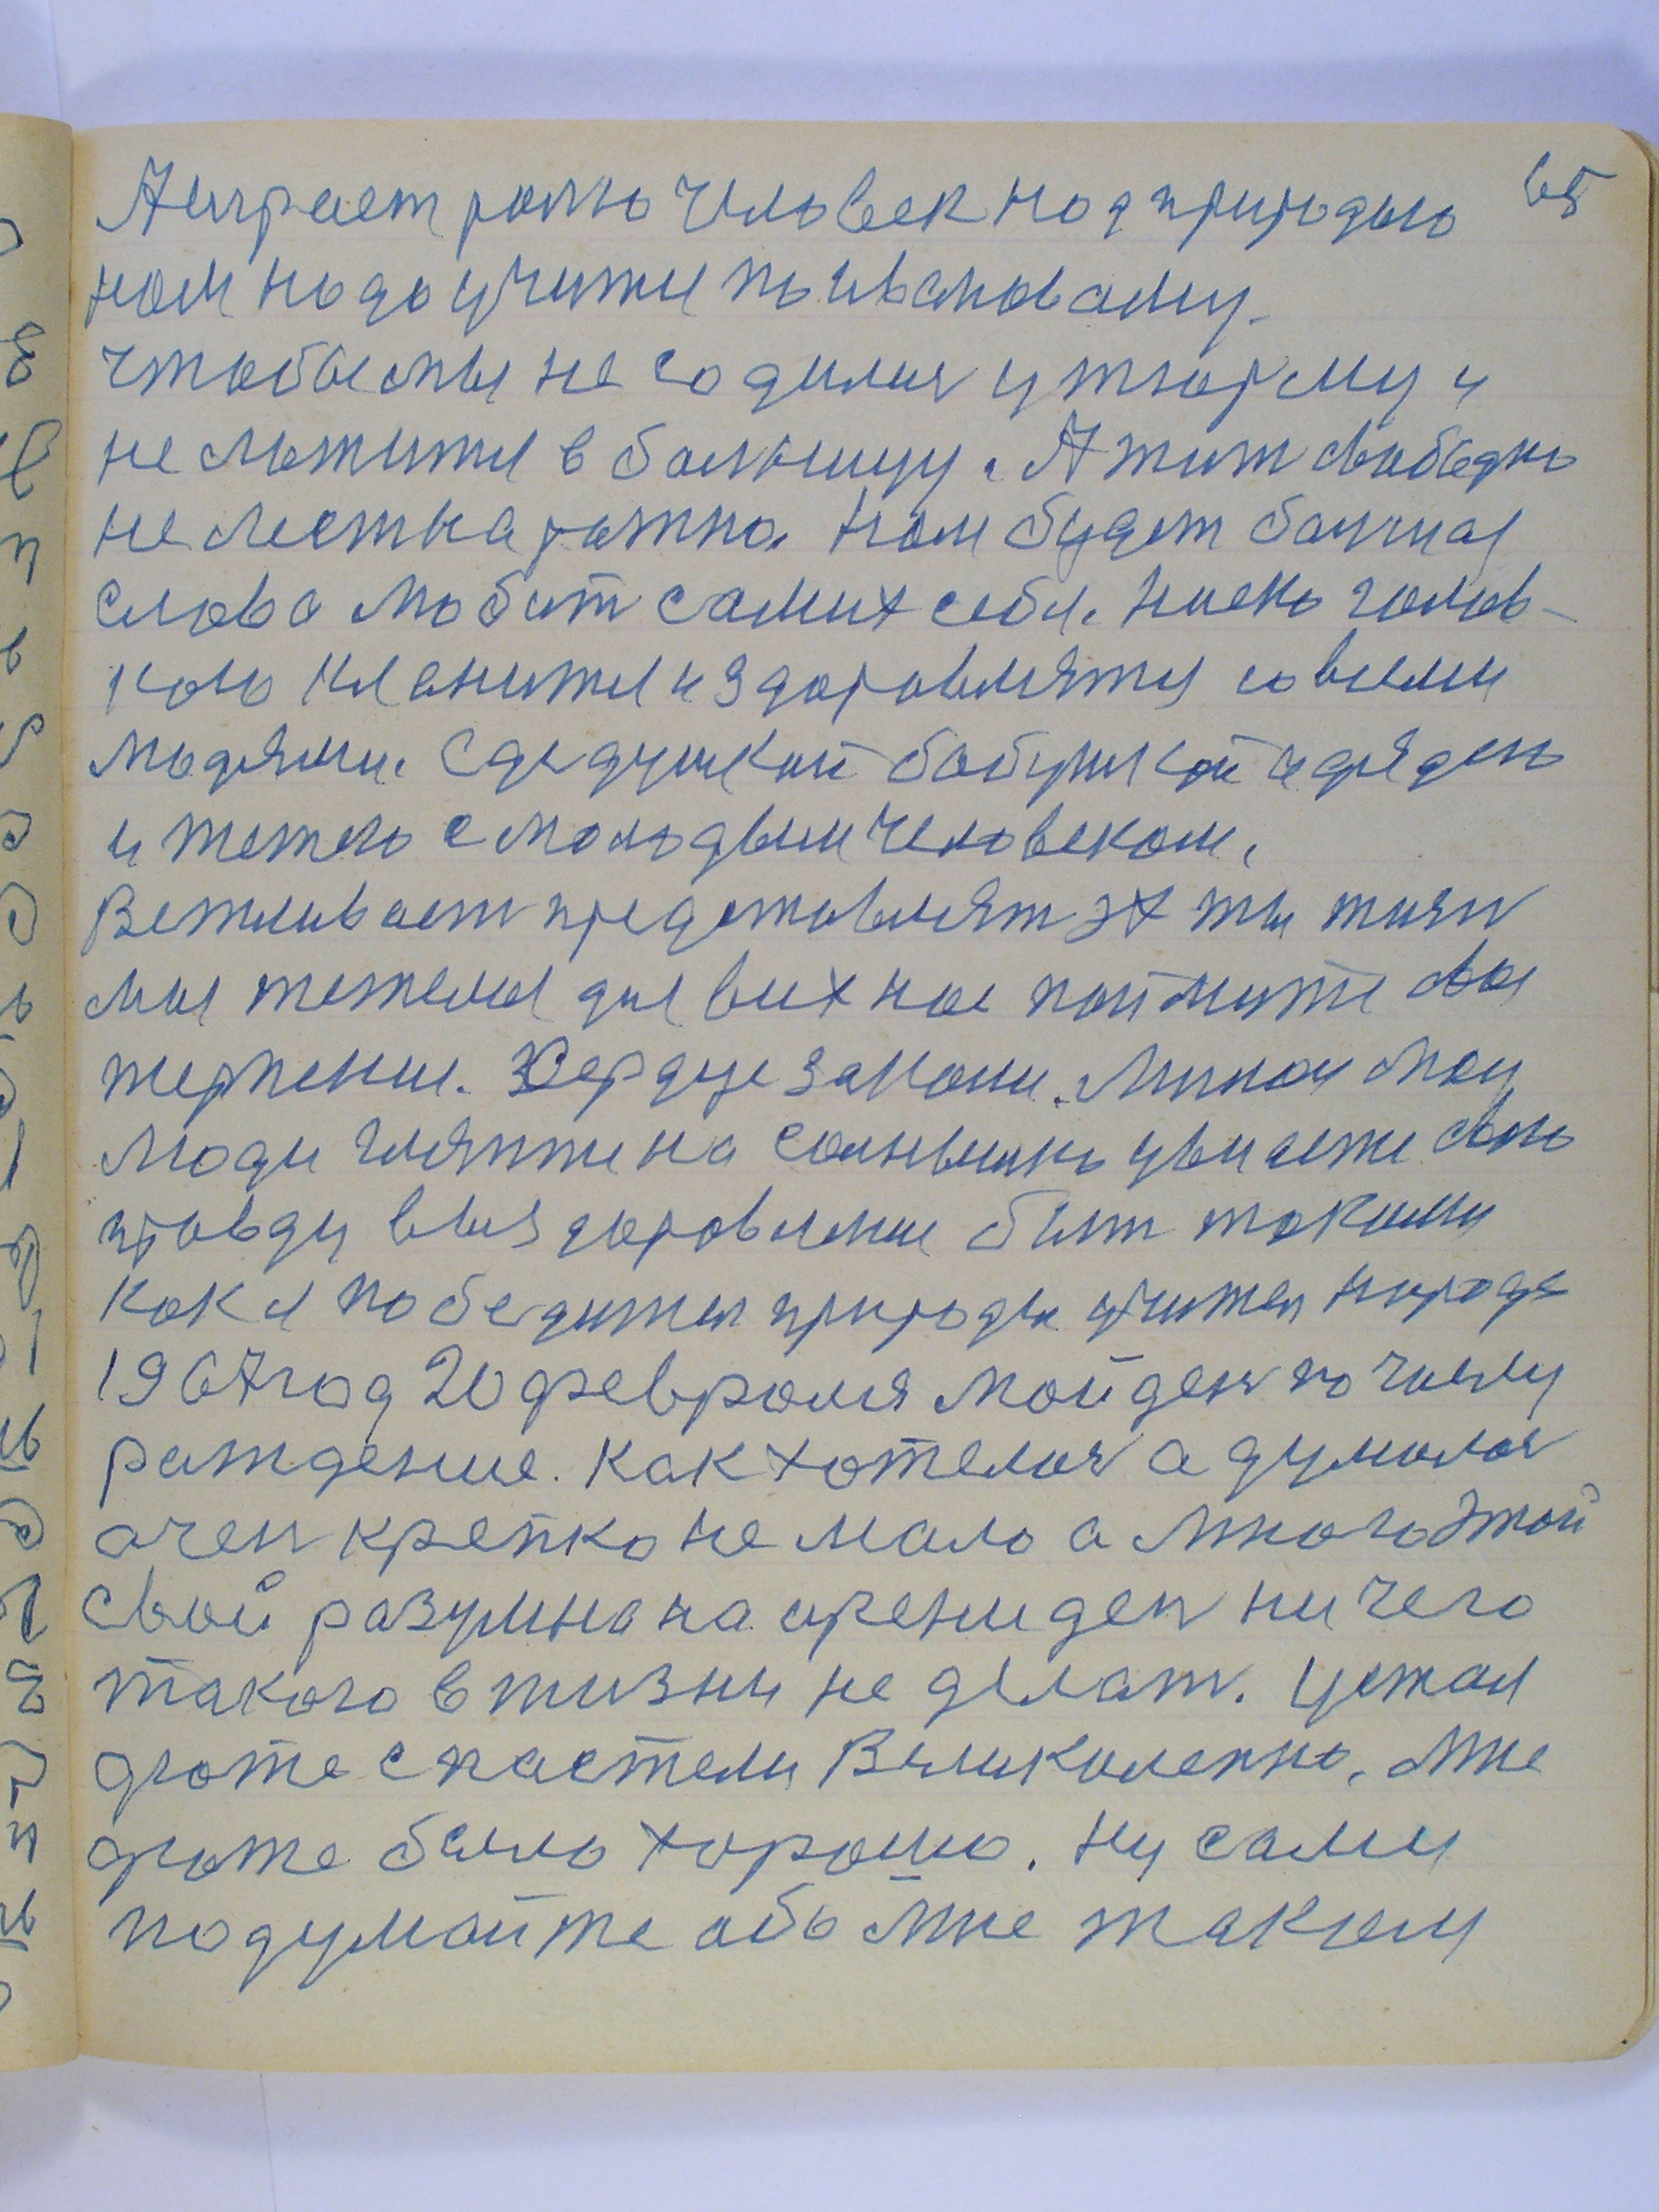 65
А играет ролю человек над природою
нам надо учится по ивановому.
чтобы мы не содился у тюрму и
не ложится в больницу. А жит свободно
не лезть на рожно. Нам будет большая
слова любит самих себя. Низко голов-
кою кланится и здоровлятся со всеми
людями. С дедушкой бабушкой и дядею
и тетею с молодым человеком.
Ветливает представлят эх ты жизн
мы тежелая для всех нас поймите свое
терпение. Сердце закони. Милои мои
люди глятте на солнышко увидете свою
правду выздоровление быт такими
как я победител природы учител народа
1967 год 20 февроля мой ден по числу
рождение. Как хотелос а думалос
очен крепко не мало а много этой
свой разумно на арени ден ничего
такого в жизни не делат. Устал
даже с пастели Великолепно. Мне
даже было хорошо. Ну сами
подумайте обо мне таким